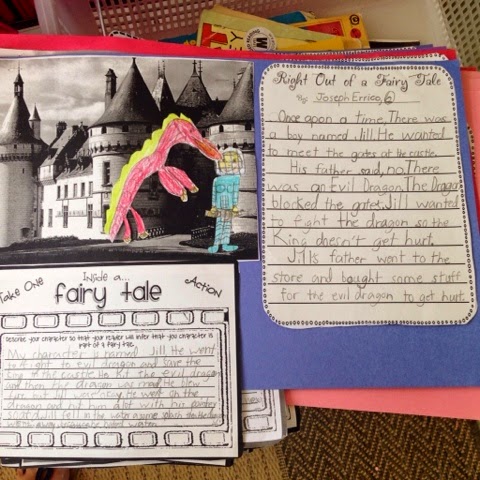 Right Out of a Fairy Tale
By Joseph Errico, 6
Once upon a time, There was
a boy named Jill. He wanted
to meet the gates at the castle.
His father said, no. There
was an Evil Dragon. The Dragon
blocked the gates. Jill wanted
to fight the dragon so the
King doesn't get hurt.
Jill's father went to the
store and bought some stuff
for the evil dragon to get hurt.
Take One
Inside a...
Action
fairy tale
Describe your character so that your reader will infer that you character is
part of a fairy tale.
My character is named Jill. He went
to fight to evil dragon and save the
king at the castle. He the evil dragon
and then the dragon was mad. He blew
fire but Jill was okay. He went on the
dragon and hit him but with his
sword and fell in the water
away because hated water.